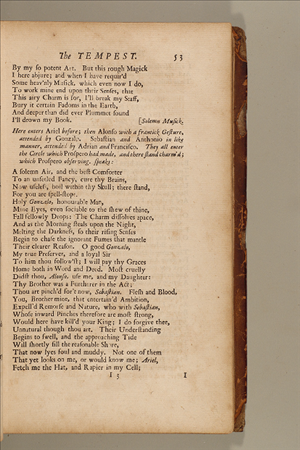 The TEMPEST. 53
By my so potent Art. But this rough Magick
I here abjure; and when I have requir'd
Some heav'nly Musick, which even now I do,
To work mine end upon their Senses, that
This airy Charm is for, I'll break my Staff,
Bury it certain Fadoms in the Earth,
And deeper than did ever Plummet sound
I'll drown my Book. [Solemn Musick.
Here enters Ariel before; then Alonso with a frantick Gesture,
attended by Gonzalo. Sebastian and Anthonio in like
manner, attended by Adrian and Francisco. They all enter
the Circle which Prospero had made, and there stand charm'd;
which Prospero observing, speaks:
A solemn Air, and the best Comforter
To an unsetled Fancy, cure thy Brains,
Now useless, boil within thy Skull; there stand,
For you are spell-stopt.
Holy Gonzalo, honourable Man,
Mine Eyes, even sociable to the shew of thine,
Fall fellowly Drops: The Charm dissolves apace,
And as the Morning steals upon the Night,
Melting the Darkness, so their rising Senses
Begin to chase the ignorant Fumes that mantle
Their clearer Reason. O good Gonzalo,
My true Preserver, and a loyal Sir
To him thou follow'st; I will pay thy Graces
Home both in Word and Deed. Most cruelly
Didst thou, Alonso, use me, and my Daughter:
Thy Brother was a Furtherer in the Act;
Thou art pinch'd for't now, Sebastian. Flesh and Blood,
You, Brother mine, that entertain'd Ambition,
Expell'd Remorse and Nature, who with Sebastian,
Whose inward Pinches therefore are most strong,
Would here have kill'd your King; I do forgive thee,
Unnatural though thou art. Their Understanding
Begins to swell, and the approaching Tide
Will shortly fill the reasonable Shore,
That now lyes foul and muddy. Not one of them
That yet looks on me, or would know me; Ariel,
Fetch me the Hat, and Rapier in my Cell;
I 3 I